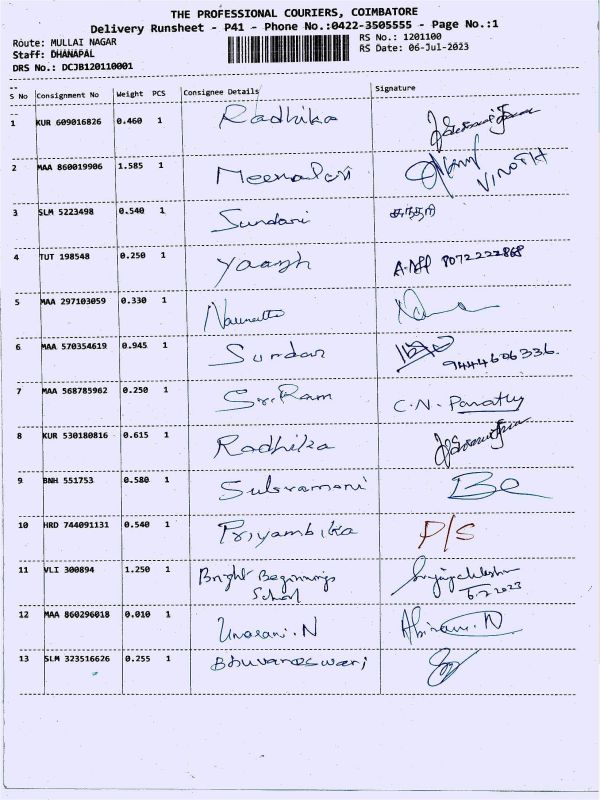 THE PROFESSIONAL COURIERS, COIMBATORE
Delivery Runsheet - P41 - Phone No.:0422-3505555 - Page No.:1
Route: MULLAI NAGAR RS No.: 1201100
Staff: DHANAPAL RS Date: 06-Jul-2023
DRS No.: DCJB120110001
S No Consignment No Weight PCS Consignee Details Signature
1 KUR 609016826 0.460 1 Radhika
2 MAA 860019906 1.585 1 VINOTH
3 SLM 5223498 0.540 1 Sundari சுந்தரி
4 TUT 198548 0.250 1 Yaazh 8072222868
5 MAA 297103059 0.330 1
6 MAA 570354619 0.945 1 Sundar
9444606336.
7 MAA 568785962 0.250 1 Sri Ram C.N.
8 KUR 530180816 0.615 1 Radhika
9 BNH 551753 0.580 1 Subramani
10 HRD 744091131 0.540 1 Priyambika P/S
11 VLI 300894 1.250 1 Bright Beginnings
School 6.7.2023
12 MAA 860296018 0.010 1
13 SLM 323516626 0.255 1 Bhuvaneswari